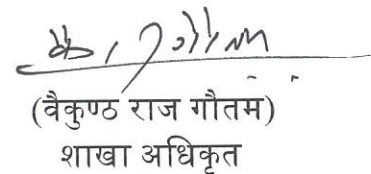 (वैकुण्ठ राज गौतम)
शाखा अधिकृत